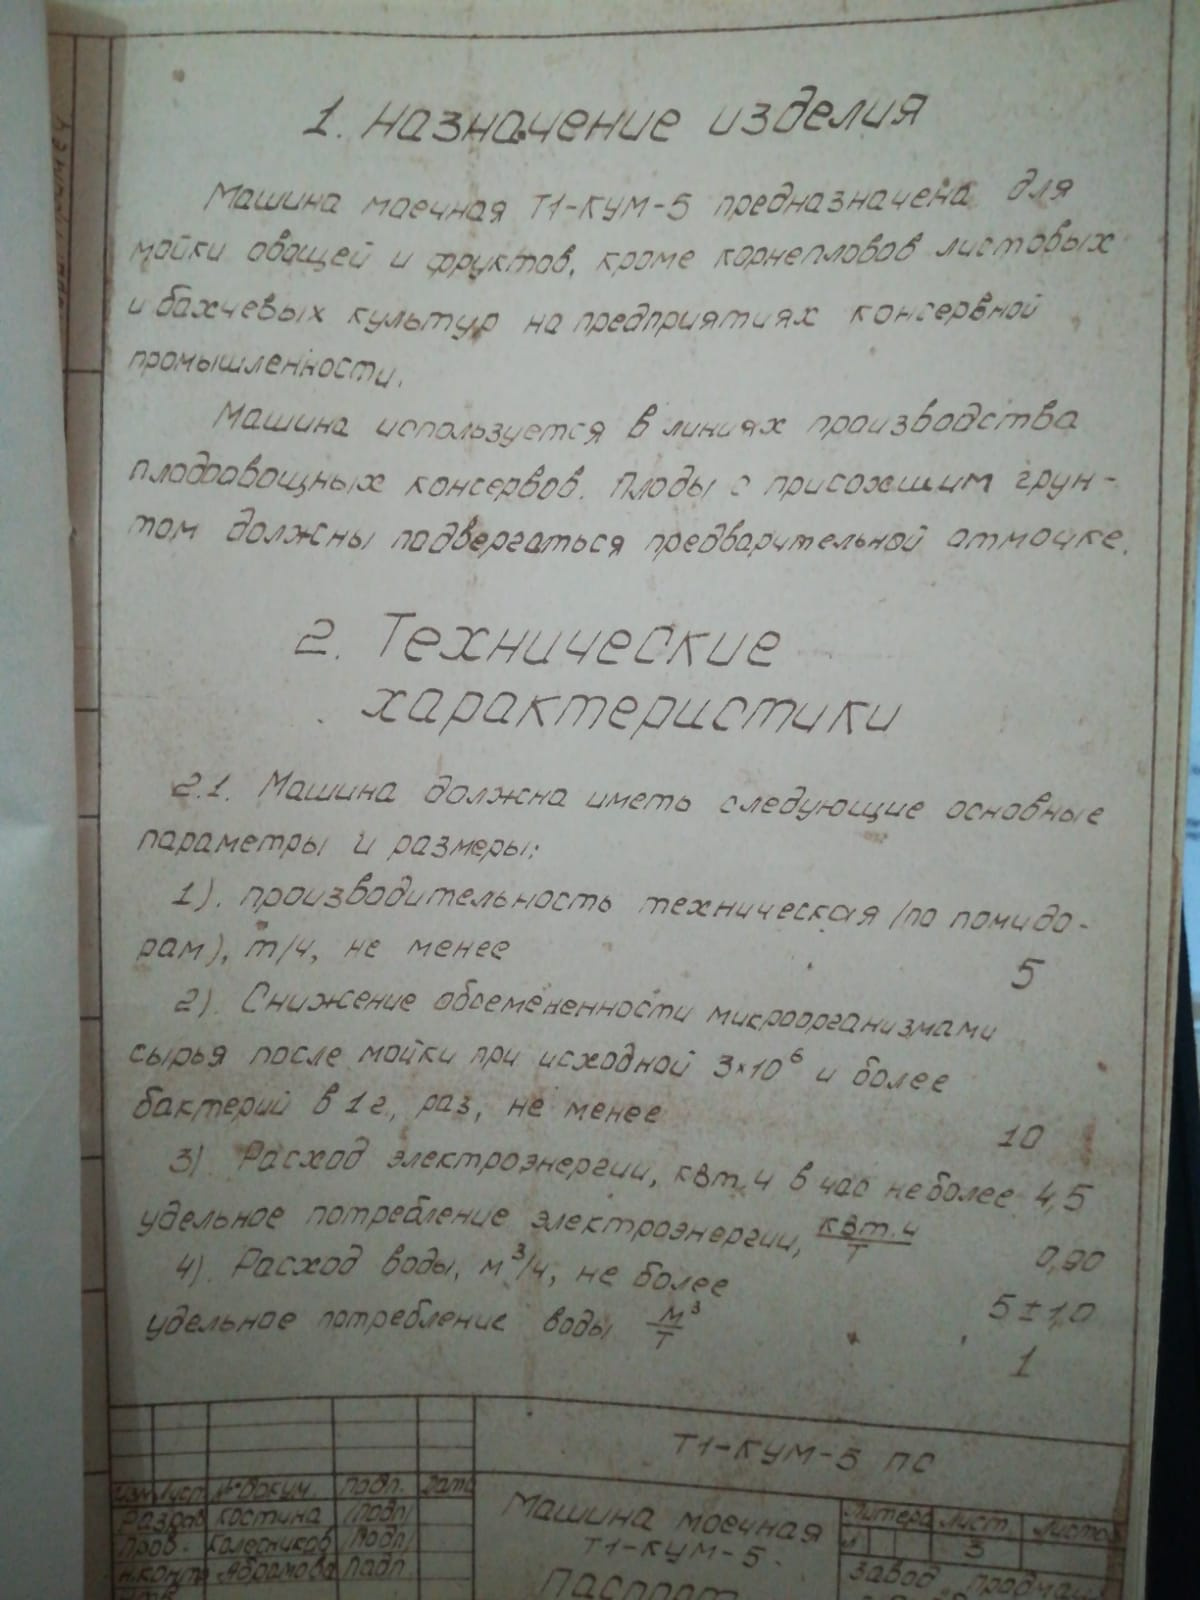 1. Назначение изделия
Машина моечная Т1-КУМ-5 предназначена для
мойки овощей и фруктов, кроме корнеплодов листовых
и бахчевых культур на предприятиях консервной
промышленности.
Машина используется в линиях производства
плодоовощных консервов. Плоды с присохшим грун-
том должны подвергаться предварительной отмочке.
2. Технические
характеристики
2.1. Машина должна иметь следующие основные
параметры и размеры:
1). производительность техническая (по помидо-
рам), т/ч, не менее 5
2). Снижение обсемененности микроорганизмами
сырья после мойки при исходной 3×10⁶ и более
бактерий в 1 г., раз, не менее 10
3). Расход электроэнергии, квт.ч в час не более 4,5
удельное потребление электроэнергии, квт.ч/т 0,90
4). Расход воды, м³/ч, не более 5±1,0
удельное потребление воды м³/т 1
Т1-КУМ-5 ПС
Изм. Лист №докум. Подп. Дата
Разраб Костина /Подп/
Пров. Колесников /Подп/
Н.контр Абрамова Подп.
Машина моечная
Т1-КУМ-5.
Паспорт
Литера Лист. Листов
3
Завод „Продмаш